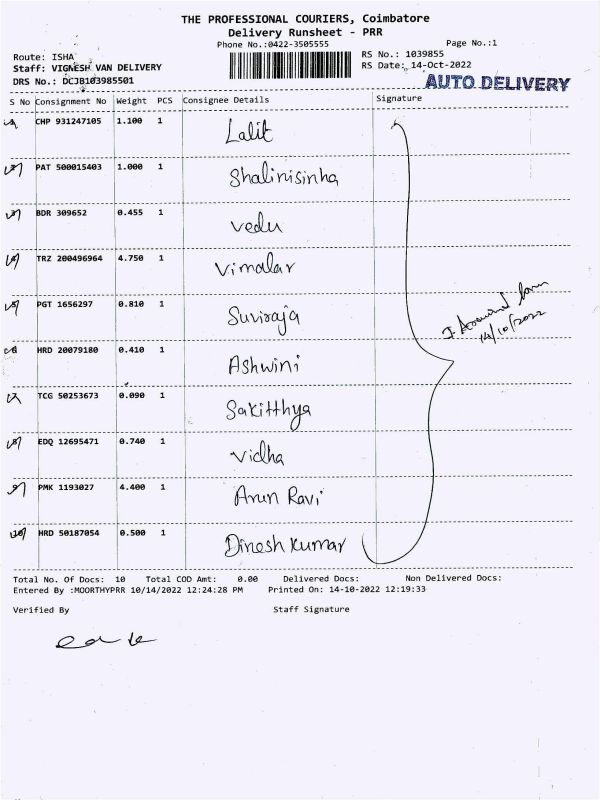 THE PROFESSIONAL COURIERS, Coimbatore
Delivery Runsheet - PRR
Phone No.:0422-3505555
Page No.:1
Route: ISHA
RS No.: 1039855
Staff: VIGNESH VAN DELIVERY
RS Date: 14-Oct-2022
DRS No.: DCJB103985501
AUTO DELIVERY
S No Consignment No Weight PCS Consignee Details Signature
1 CHP 931247105 1.100 1 Lalit
2 PAT 500015403 1.000 1 Shalinisinha
3 BDR 309652 0.455 1 vedu
4 TRZ 200496964 4.750 1 Vimalar
5 PGT 1656297 0.810 1 Suviraja
14/10/2022
6 HRD 20079180 0.410 1 Ashwini
7 TCG 50253673 0.090 1 Sakitthya
8 EDQ 12695471 0.740 1 vidha
9 PMK 1193027 4.400 1 Arun Ravi
10 HRD 50187054 0.500 1 Dinesh kumar
Total No. Of Docs: 10 Total COD Amt: 0.00 Delivered Docs: Non Delivered Docs:
Entered By :MOORTHYPRR 10/14/2022 12:24:28 PM Printed On: 14-10-2022 12:19:33
Verified By Staff Signature